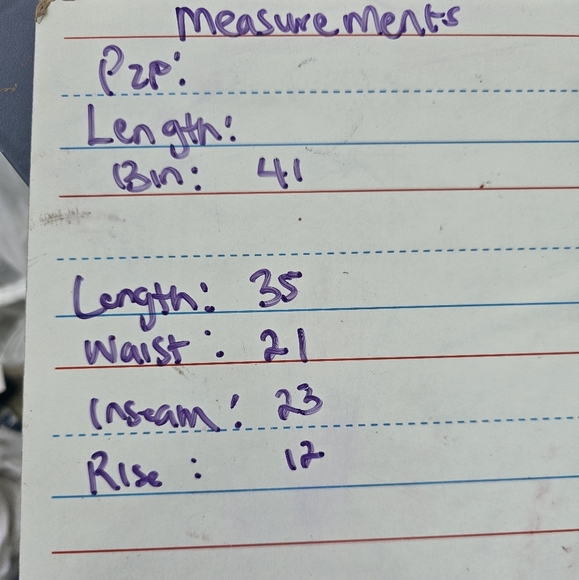 Measurements
P2P:
Length:
Bin: 41
Length: 35
Waist: 21
Inseam: 23
Rise: 12